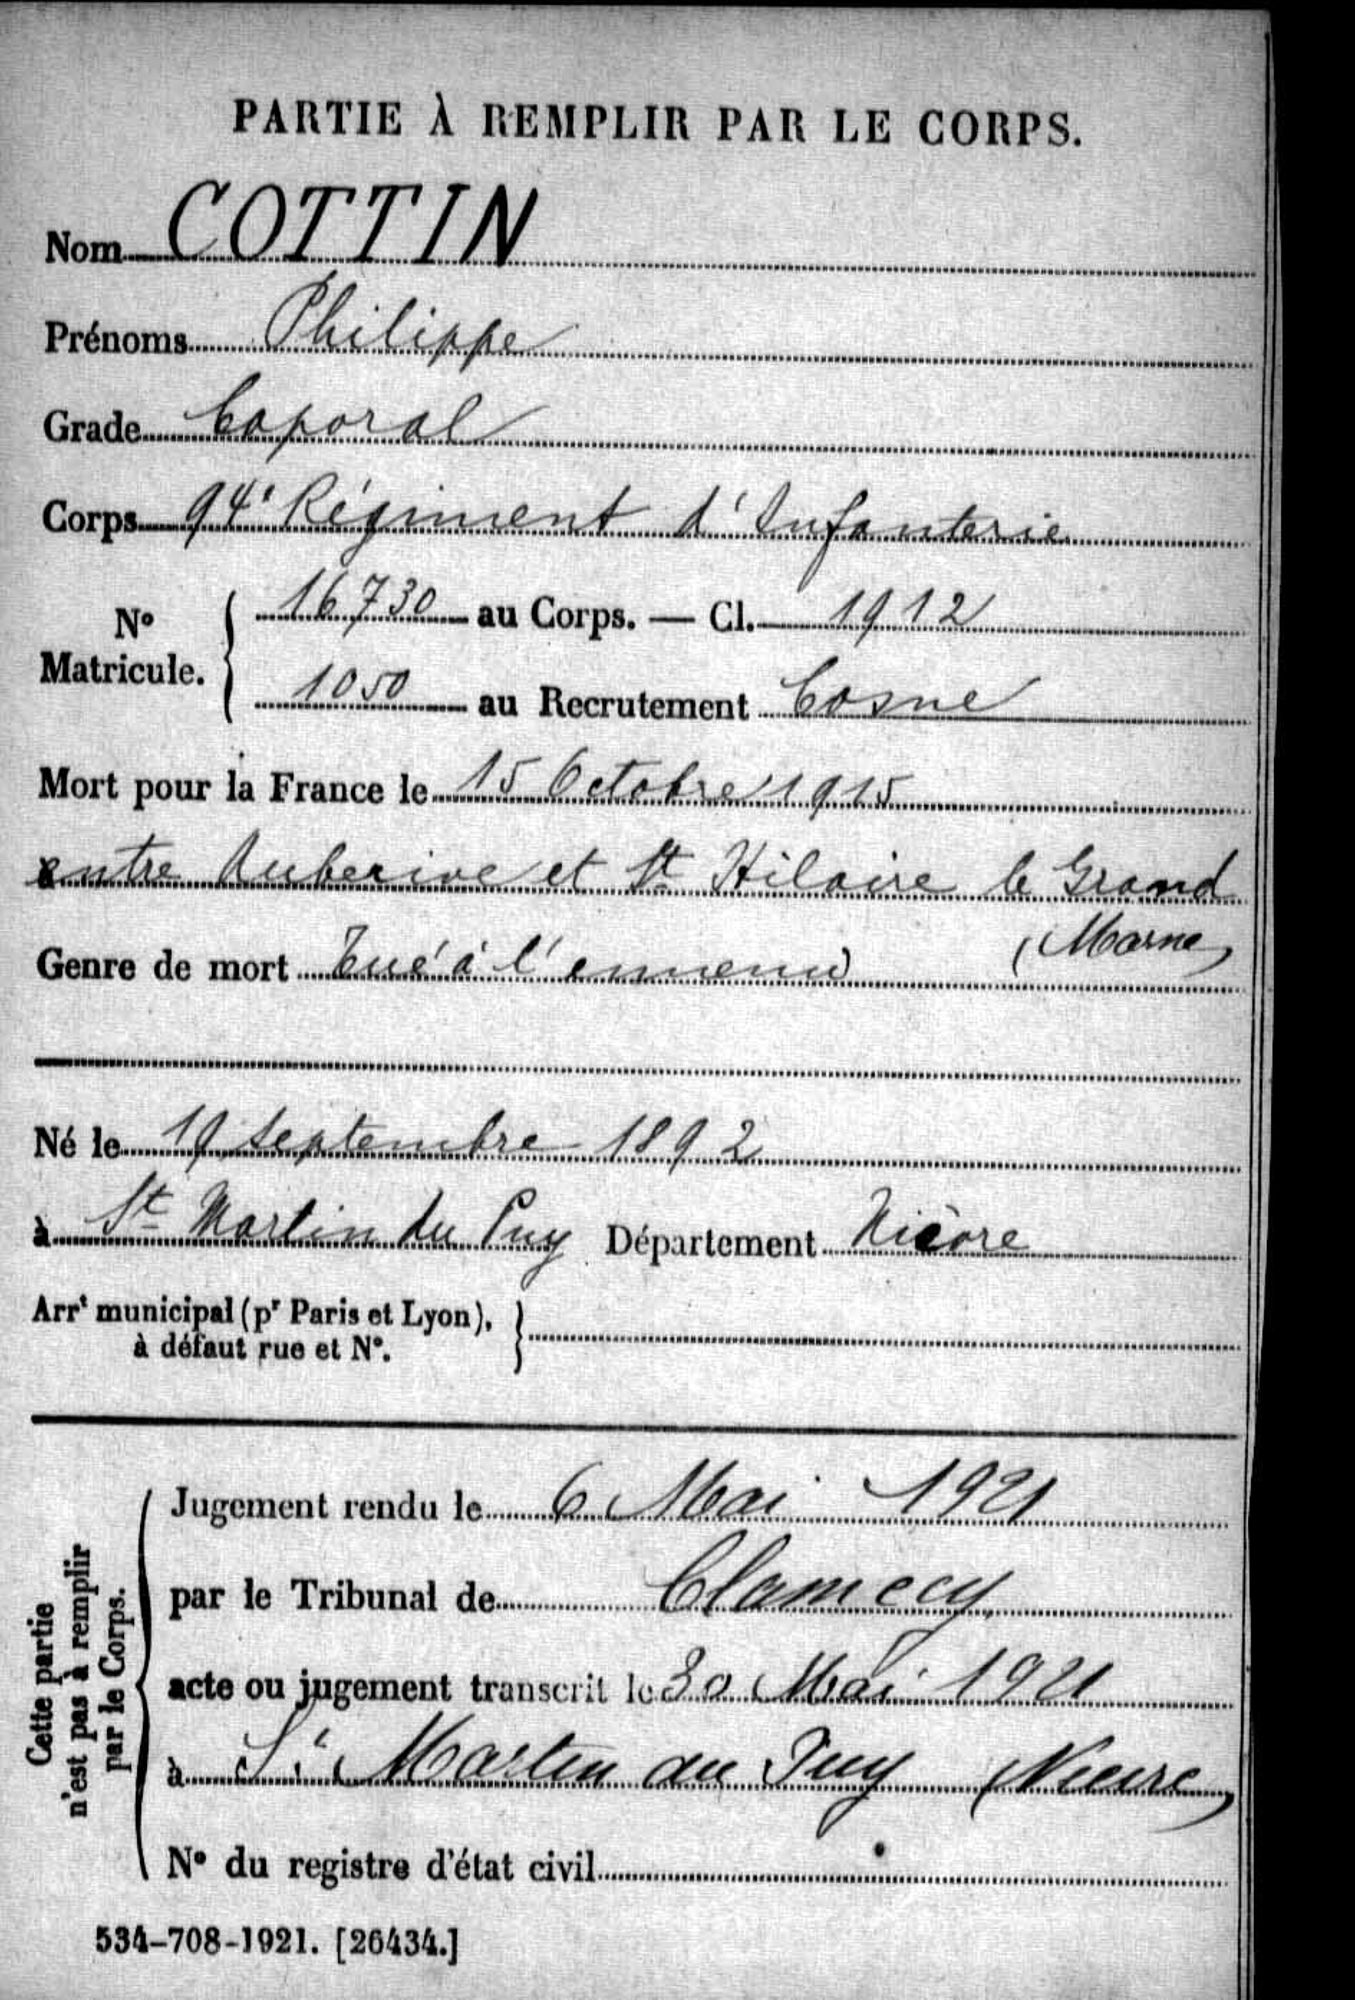 PARTIE À REMPLIR PAR LE CORPS.
Nom COTTIN
Prénoms Philippe
Grade Caporal
Corps 94e Régiment d'Infanterie
N° Matricule.
16730 au Corps. — Cl. 1912
1050 au Recrutement Cosne
Mort pour la France le 15 Octobre 1915
entre Auberive et St Hilaire le Grand
(Marne)
Genre de mort Tué à l'ennemi
Né le 19 Septembre 1892
à St Martin du Puy Département Nièvre
Arrt municipal (pr Paris et Lyon),
à défaut rue et N°.
Cette partie
n'est pas à remplir
par le Corps.
Jugement rendu le 6 Mai 1921
par le Tribunal de Clamecy
acte ou jugement transcrit le 30 Mai 1921
à St Martin du Puy (Nièvre)
N° du registre d'état civil
534-708-1921. [26434.]